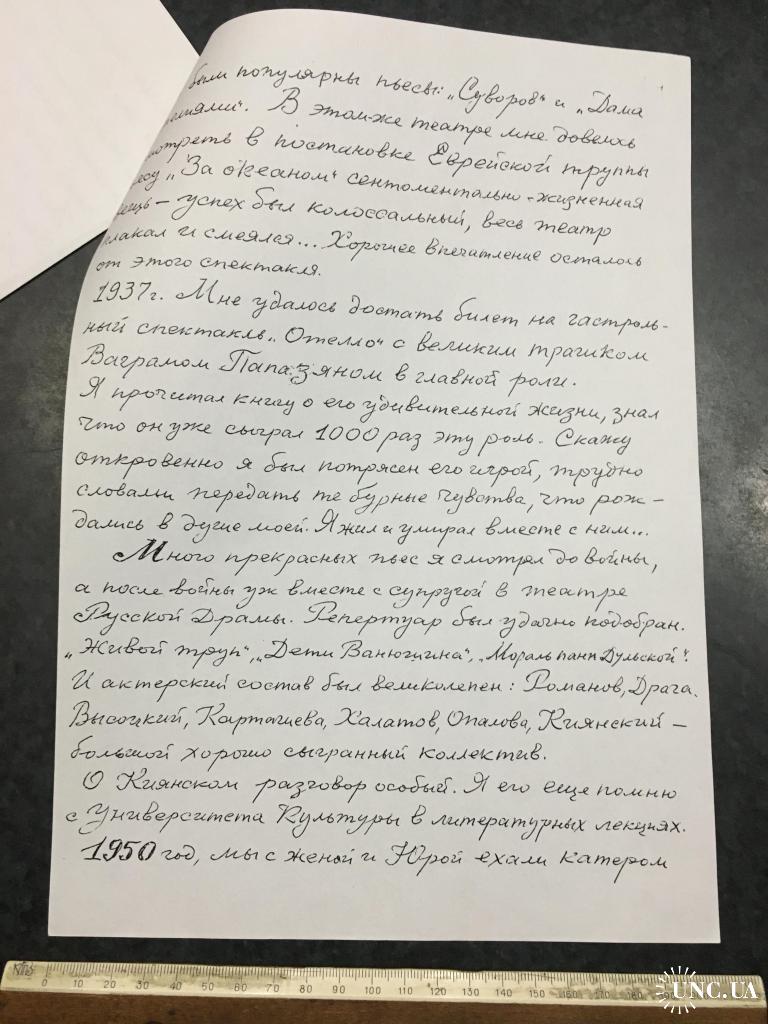 были популярны пьесы: „Суворов“ и „Дама
мелиями“. В этом-же театре мне довелось
мотреть в постановке Еврейской труппы
есу „За океаном“ сентоментально-жизненная
вещь – успех был колоссальный, весь театр
плакал и смеялся... Хорошее впечатление осталось
от этого спектакля.
1937г. Мне удалось достать билет на гастроль-
ный спектакль „Отелло“ с великим трагиком
Ваграмом Папазяном в главной роли.
Я прочитал книгу о его удивительной жизни, знал
что он уже сыграл 1000 раз эту роль. Скажу
откровенно я был потрясен его игрой, трудно
словами передать те бурные чувства, что рож-
дались в душе моей. Я жил и умирал вместе с ним...
Много прекрасных пьес я смотрел до войны,
а после войны уж вместе с супругой в театре
Русской Драмы. Репертуар был удачно подобран.
„Живой труп“, „Дети Ванюшина“, „Мораль пани Дульской“.
И актерский состав был великолепен: Романов, Драга.
Высоцкий, Карташева, Халатов, Опалова, Киянский –
большой хорошо сыгранный коллектив.
О Киянском разговор особый. Я его еще помню
с Университета Культуры в литературных лекциях.
1950 год, мы с женой и Юрой ехали катером
0 10 20 30 40 50 60 70 80 90 100 110 120 130 140 150 160 170 180
UNC.UA